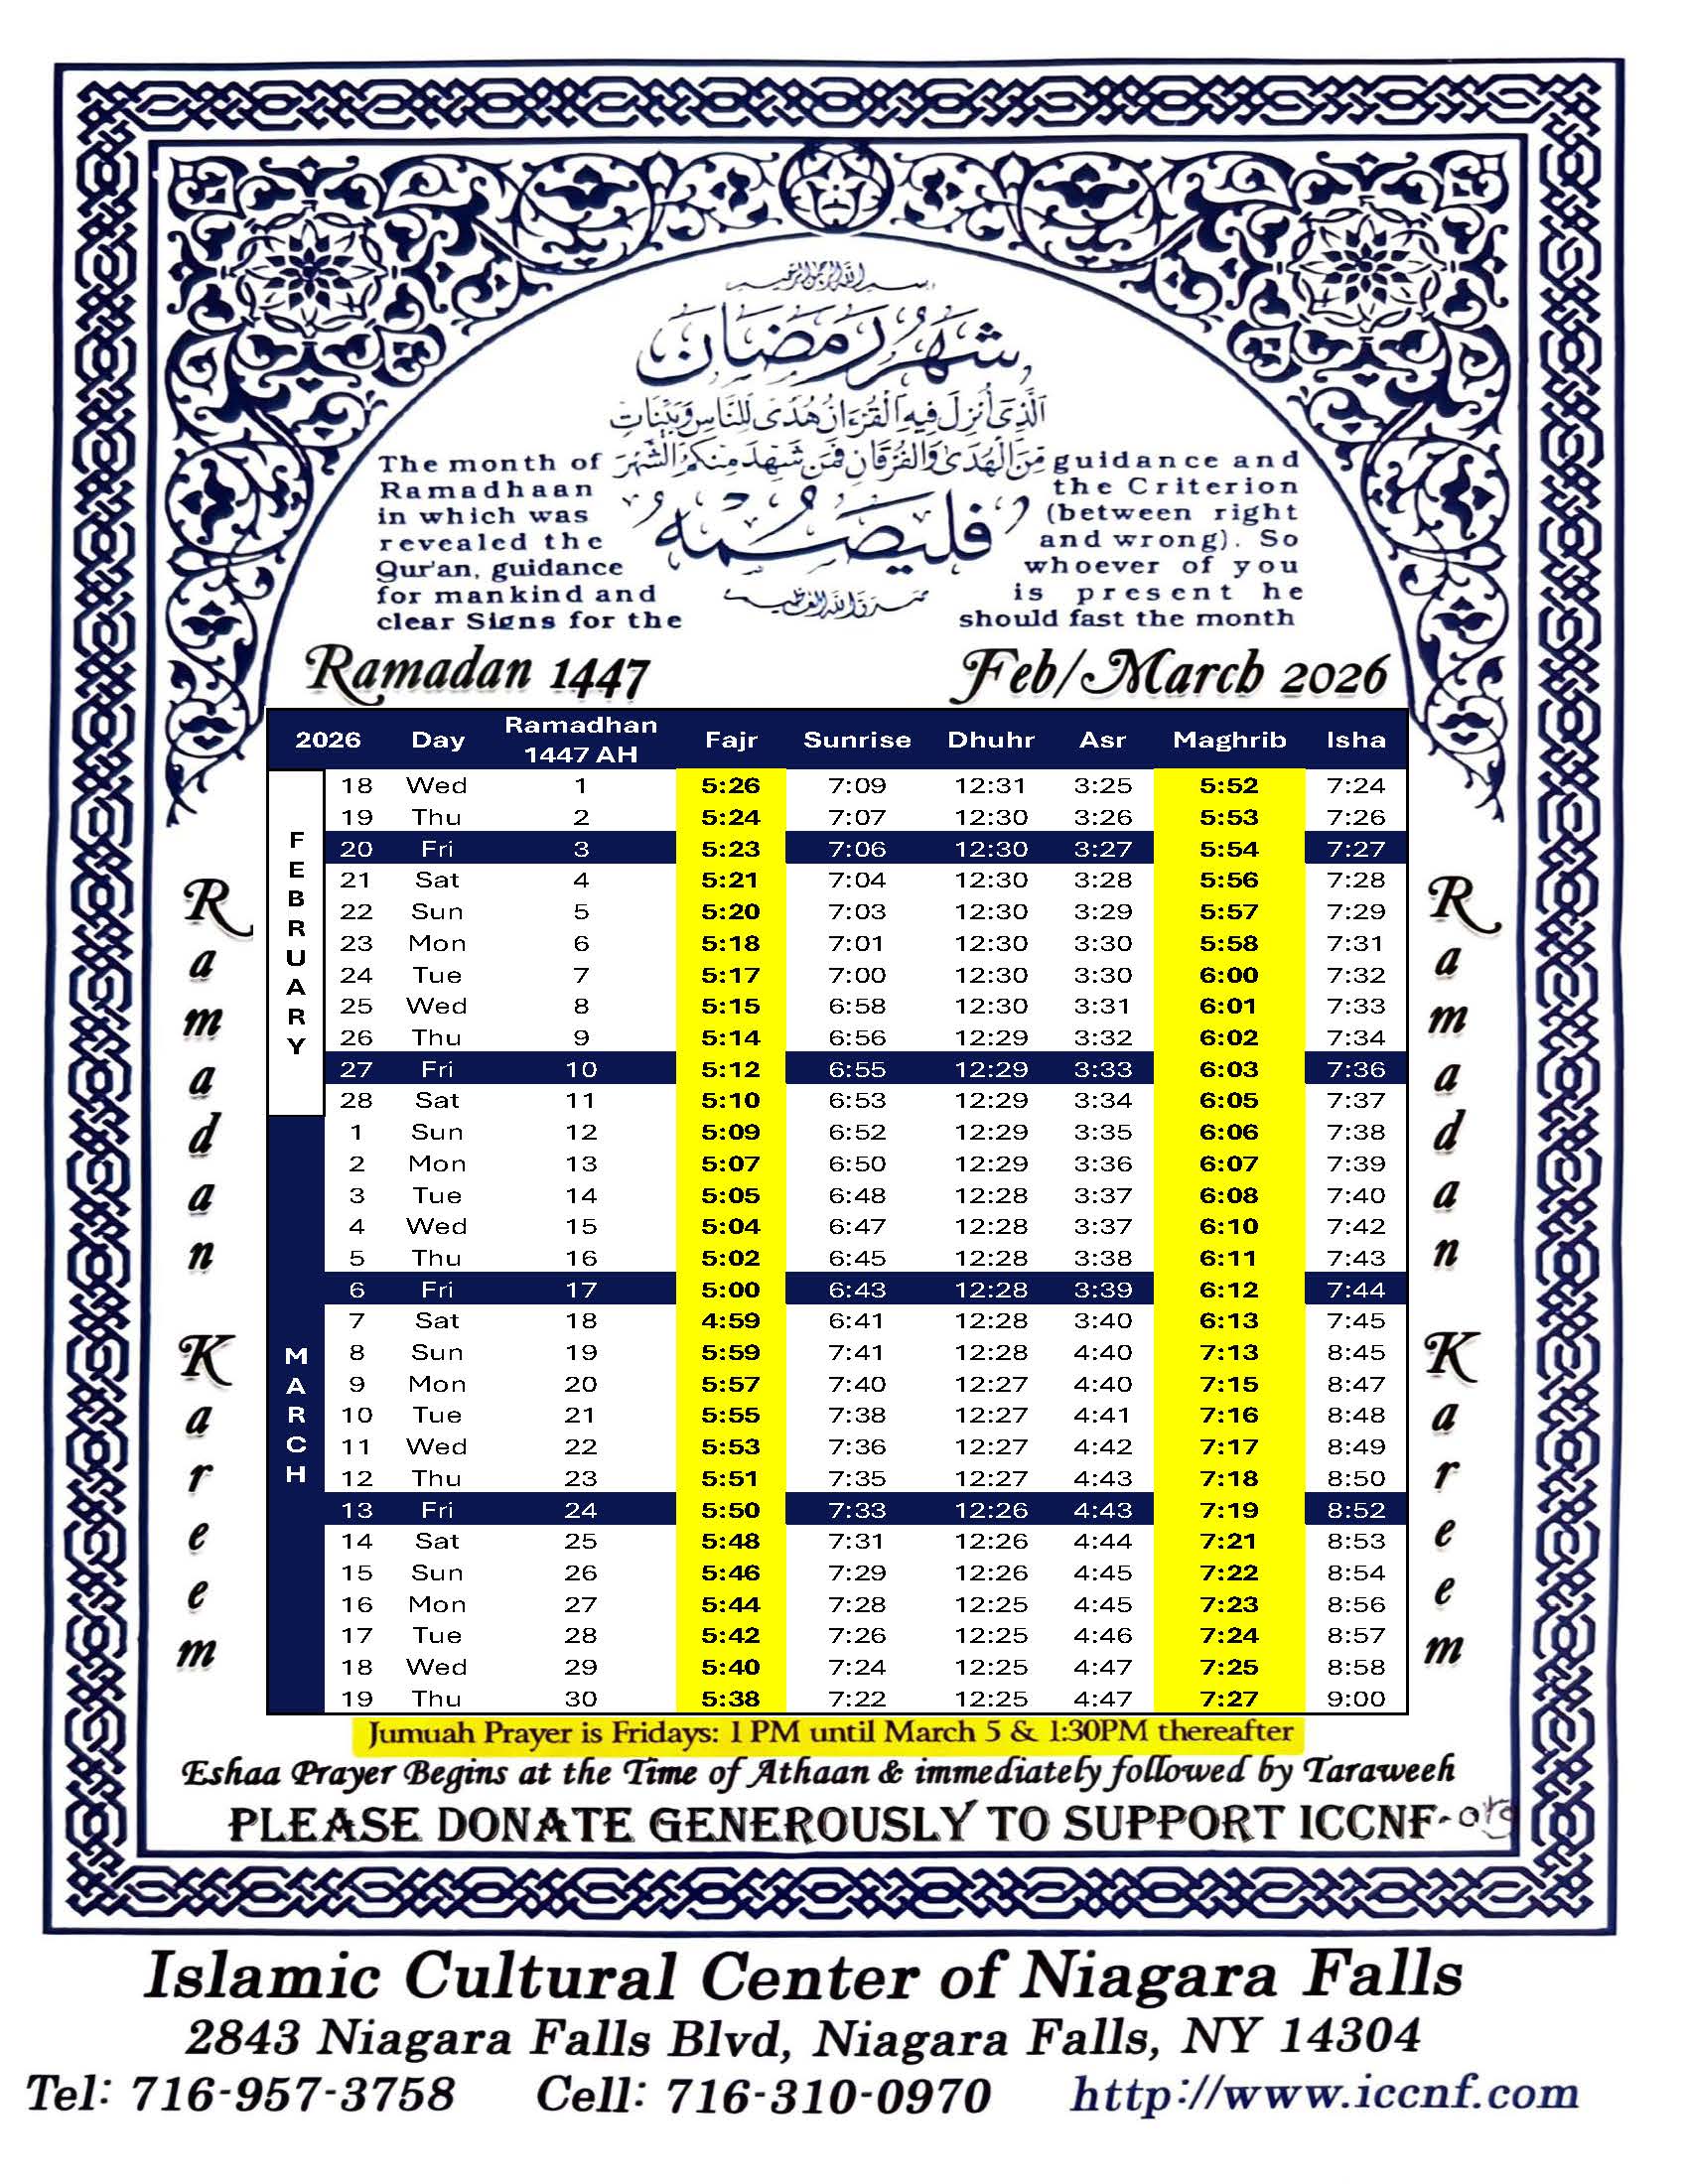 بسم الله الرحمن الرحيم
شَهْرُ رَمَضَانَ
الَّذِي أُنزِلَ فِيهِ الْقُرْءَانُ هُدًى لِّلنَّاسِ وَبَيِّنَاتٍ
مِّنَ الْهُدَى وَالْفُرْقَانِ فَمَن شَهِدَ مِنكُمُ الشَّهْرَ
فَلْيَصُمْهُ
صدق الله العظيم
The month of
Ramadhaan
in which was
revealed the
Qur'an, guidance
for mankind and
clear Signs for the
guidance and
the Criterion
(between right
and wrong). So
whoever of you
is present he
should fast the month
Ramadan 1447 Feb/March 2026
2026 Day Ramadhan 1447 AH Fajr Sunrise Dhuhr Asr Maghrib Isha
FEBRUARY
18 Wed 1 5:26 7:09 12:31 3:25 5:52 7:24
19 Thu 2 5:24 7:07 12:30 3:26 5:53 7:26
20 Fri 3 5:23 7:06 12:30 3:27 5:54 7:27
21 Sat 4 5:21 7:04 12:30 3:28 5:56 7:28
22 Sun 5 5:20 7:03 12:30 3:29 5:57 7:29
23 Mon 6 5:18 7:01 12:30 3:30 5:58 7:31
24 Tue 7 5:17 7:00 12:30 3:30 6:00 7:32
25 Wed 8 5:15 6:58 12:30 3:31 6:01 7:33
26 Thu 9 5:14 6:56 12:29 3:32 6:02 7:34
27 Fri 10 5:12 6:55 12:29 3:33 6:03 7:36
28 Sat 11 5:10 6:53 12:29 3:34 6:05 7:37
MARCH
1 Sun 12 5:09 6:52 12:29 3:35 6:06 7:38
2 Mon 13 5:07 6:50 12:29 3:36 6:07 7:39
3 Tue 14 5:05 6:48 12:28 3:37 6:08 7:40
4 Wed 15 5:04 6:47 12:28 3:37 6:10 7:42
5 Thu 16 5:02 6:45 12:28 3:38 6:11 7:43
6 Fri 17 5:00 6:43 12:28 3:39 6:12 7:44
7 Sat 18 4:59 6:41 12:28 3:40 6:13 7:45
8 Sun 19 5:59 7:41 12:28 4:40 7:13 8:45
9 Mon 20 5:57 7:40 12:27 4:40 7:15 8:47
10 Tue 21 5:55 7:38 12:27 4:41 7:16 8:48
11 Wed 22 5:53 7:36 12:27 4:42 7:17 8:49
12 Thu 23 5:51 7:35 12:27 4:43 7:18 8:50
13 Fri 24 5:50 7:33 12:26 4:43 7:19 8:52
14 Sat 25 5:48 7:31 12:26 4:44 7:21 8:53
15 Sun 26 5:46 7:29 12:26 4:45 7:22 8:54
16 Mon 27 5:44 7:28 12:25 4:45 7:23 8:56
17 Tue 28 5:42 7:26 12:25 4:46 7:24 8:57
18 Wed 29 5:40 7:24 12:25 4:47 7:25 8:58
19 Thu 30 5:38 7:22 12:25 4:47 7:27 9:00
Ramadan Kareem
Ramadan Kareem
Jumuah Prayer is Fridays: 1 PM until March 5 & 1:30PM thereafter
Eshaa Prayer Begins at the Time of Athaan & immediately followed by Taraweeh
PLEASE DONATE GENEROUSLY TO SUPPORT ICCNF.org
Islamic Cultural Center of Niagara Falls
2843 Niagara Falls Blvd, Niagara Falls, NY 14304
Tel: 716-957-3758 Cell: 716-310-0970 http://www.iccnf.com